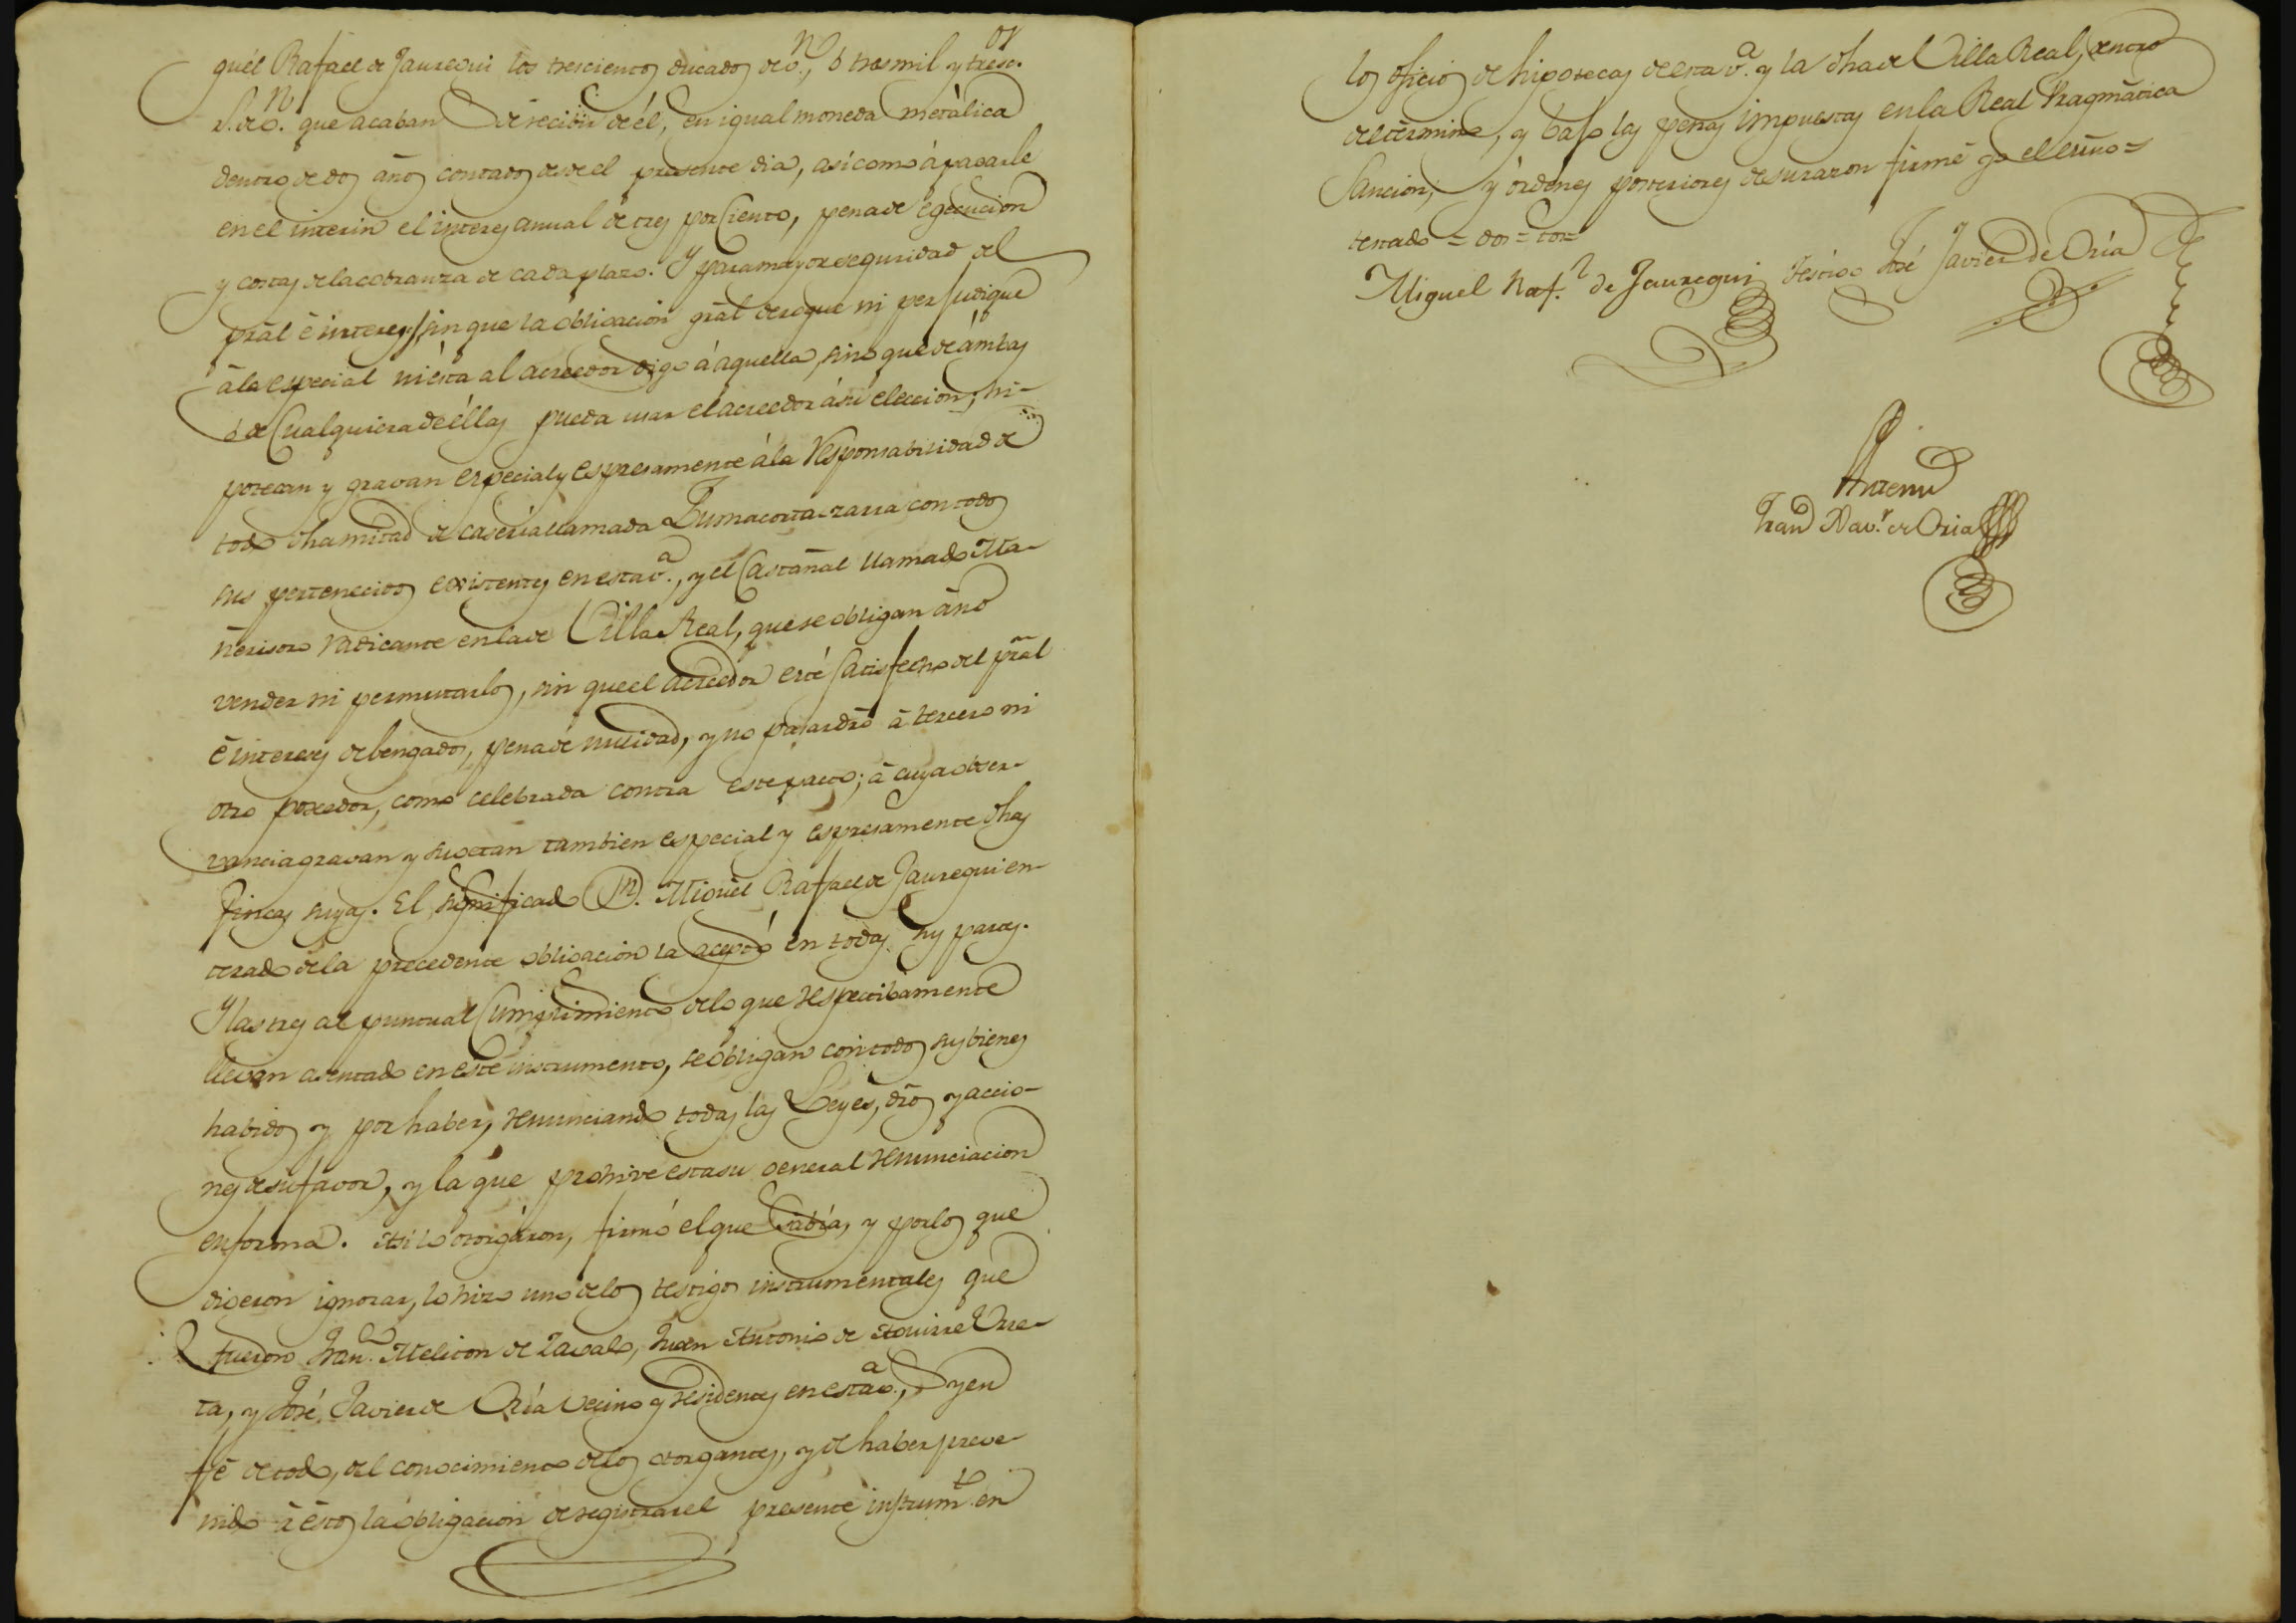 guél Rafael de Jauregui los trescientos ducados de v.n, ó tres mil y tresc.os
r.s de v.n que acaban de recibir de él, en igual moneda metálica
dentro de dos años contados desde el presente dia, así como á pagarle
en el interin el interes anual de tres por Ciento, pena de egecucion
y costas de la cobranza de cada plazo. Y para mayor seguridad del
pral é intereses, sin que la obligacion gral derogue ni perjudique
á la especial ni ésta al acreedor digo á aquella, sino que de ámbas
ó de Cualquiera de éllas pueda usar el acreedor á su eleccion, hi-
potecan y gravan especial y espresamente á la responsabilidad de
todo dha mitad de caseria llamada con todos
sus pertenecidos existentes en esta v.a, y el Castañal llamado
radicante en la de Villa Real, que se obligan á no
vender ni permutarlos, sin que el acreedor esté satisfecho del pral
é intereses debengados, pena de nulidad, y no pasar dro á tercero ni
otro poseedor, como celebrada contra este pacto; á cuya obser-
vancia gravan y sugetan tambien especial y espresamente dhas
fincas suyas. El significado D.n Miguél Rafael de Jauregui en-
terado de la precedente obligacion la aceptó en todas sus partes.
Y las tres al puntual Cumplimiento de lo que respectibamente
llevan asentado en este instrumento, se obligan con todos sus bienes
habidos y por haber, renunciando todas las Leyes, dros y accio-
nes de su favor, y la que prohive esta su general renunciacion
en forma. Asi lo otorgáron, firmó el que sabía, y por los que
digeron ignorar, lo hizo uno de los testigos instrumentales que
fueron Fran.co Meliton de Zavalo, Juan Antonio de Aguirre Urre-
ta, y José Javier de Oria vecinos y residentes en esta v.a, y en
fé de todo, del conocimiento de los otorgantes, y de haber preve-
nido á éstos la obligacion de registrar el presente instrum.to en
los oficios de hipotecas de esta v.a y la dha de Villa Real, dentro
del término, y bajo las penas impuestas en la Real Pragmática
Sancion, y órdenes posteriores de su razon firmé yo el esño =
testado = dos = tos =
Miguel Raf.l de Jauregui Testigo José Javier de Oria
Antemi
Fran.co Xav.r de Oria